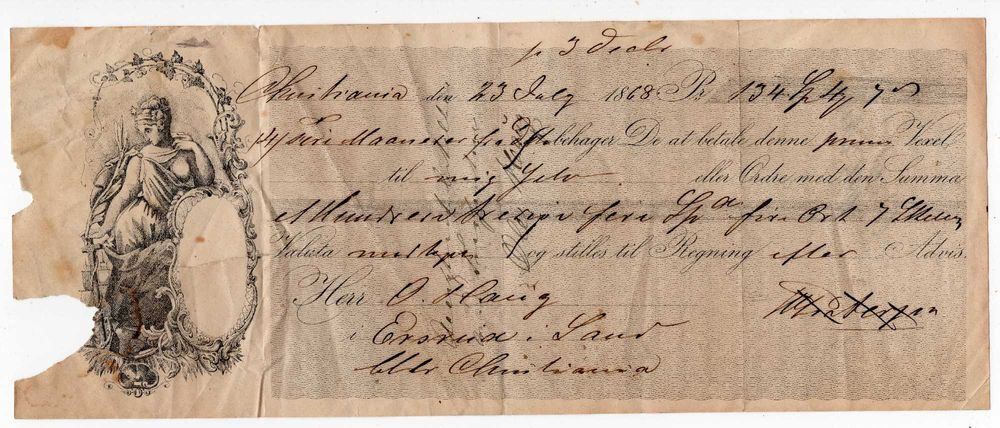 Christiania den 23 July 1868. Pr 134 Sp
behager De at betale denne prima Vexel
til mig Selv eller Ordre med den Summa
et Hundrede tredive fire Spd fire Ort 7 Skill
Valuta modtagen og stilles til Regning efter Advis.
Herr O. Haug
i Ersrud i Sand
eller Christiania